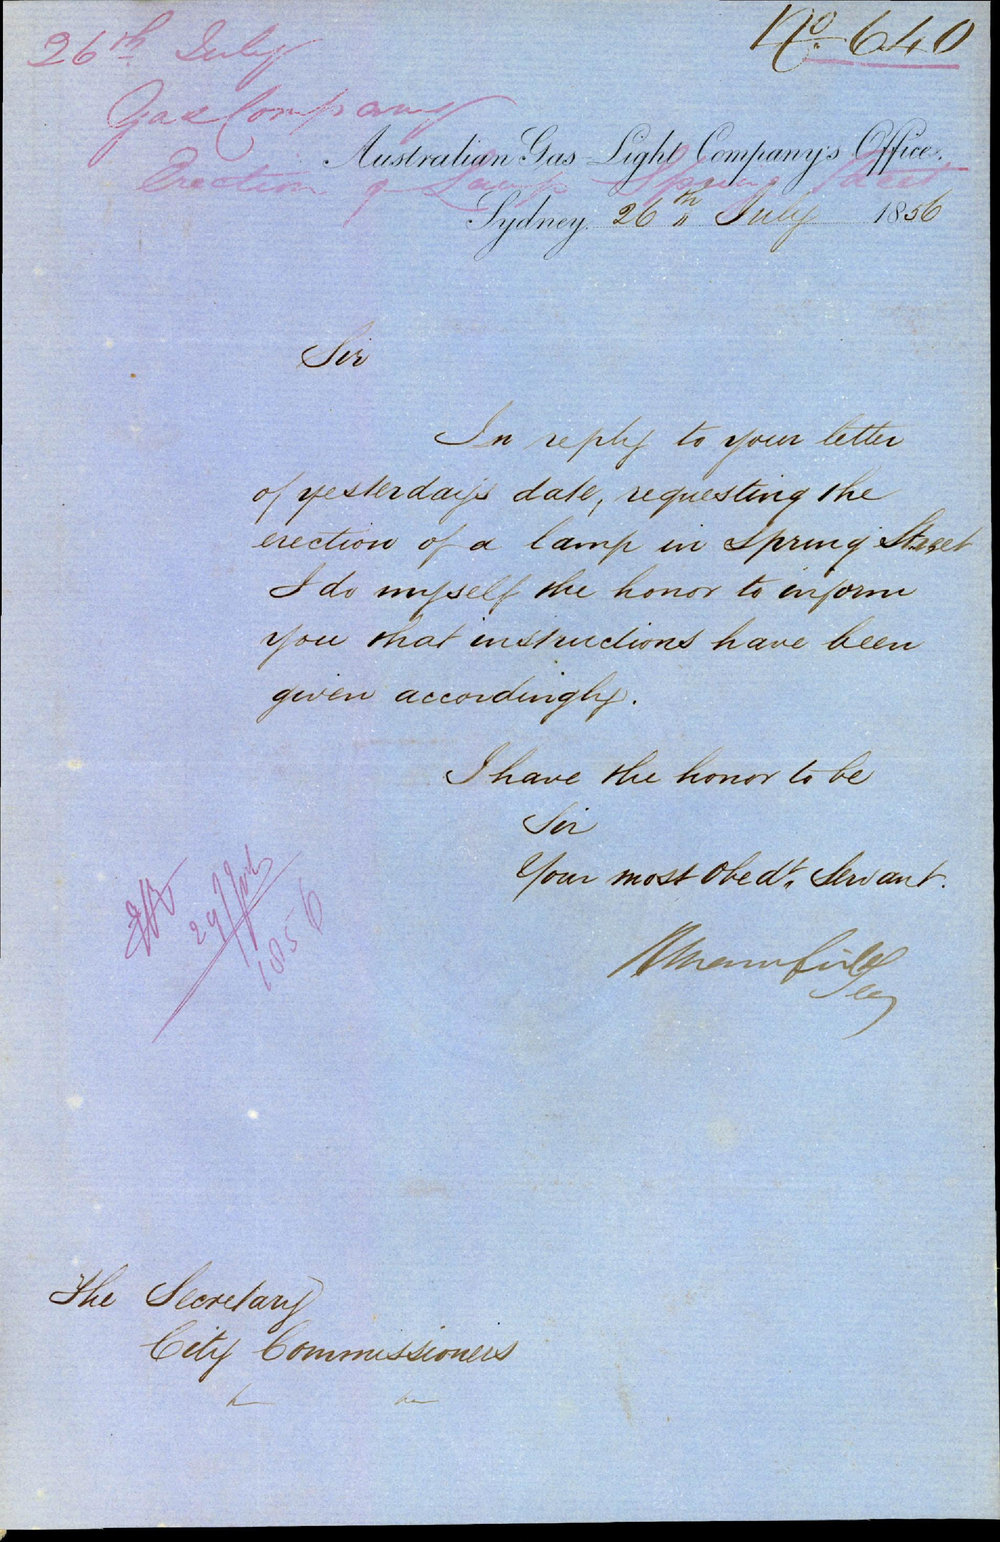 No. 640
26th July
Gas Company
Erection of Lamp Spring Street
Australian Gas Light Company's Office,
Sydney. 26th July 1856
Sir
In reply to your letter
of yesterday's date, requesting the
erection of a lamp in Spring Street
I do myself the honor to inform
you that instructions have been
given accordingly.
I have the honor to be
Sir
Your most Obedt. Servant.
RMansfield
Secy
29/July
1856
The Secretary
City Commissioners